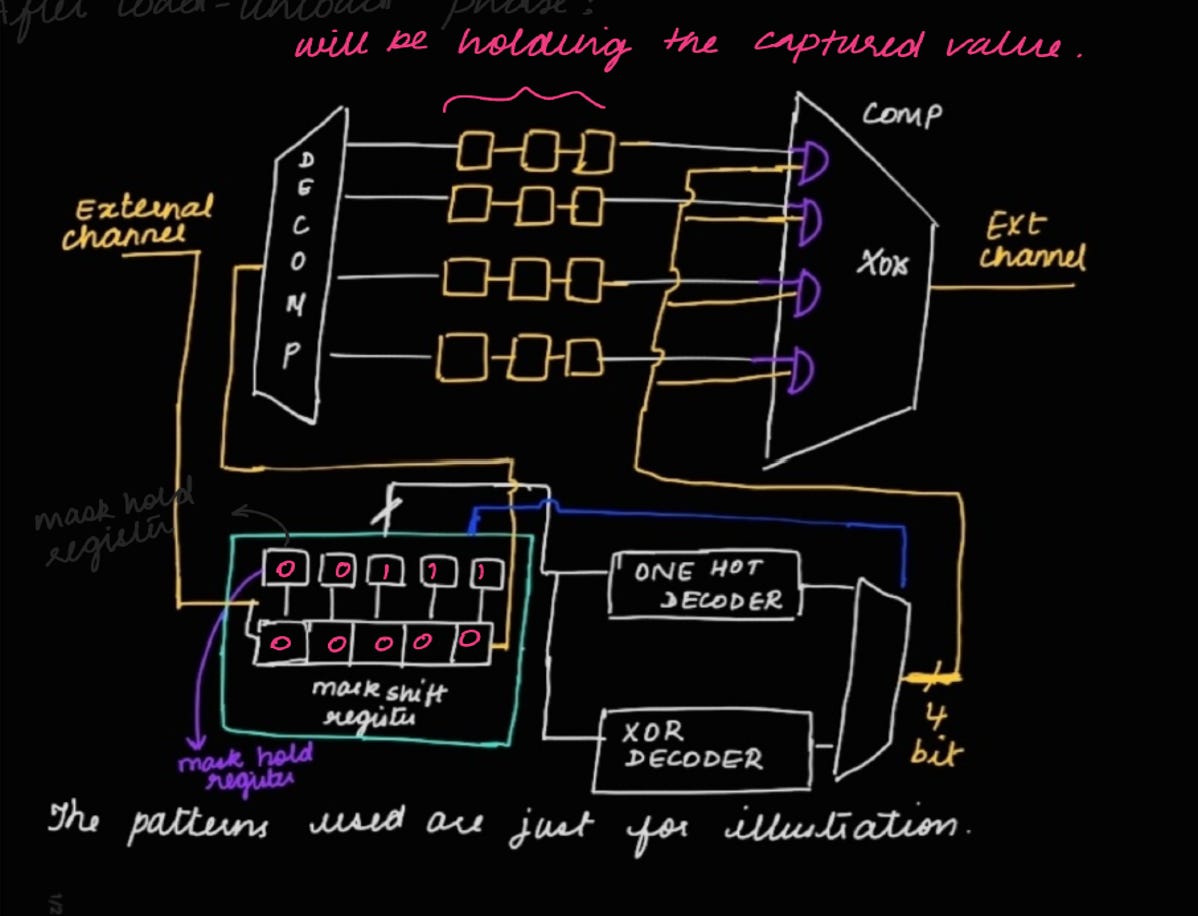 After load-unload phase:
will be holding the captured value.
COMP
DECOMP
External
channel
XOR
Ext
channel
mask hold
register
0 0 1 1 1
0 0 0 0 0
mask shift
register
mask hold
register
ONE HOT
DECODER
XOR
DECODER
4
bit
The patterns used are just for illustration.
1/2